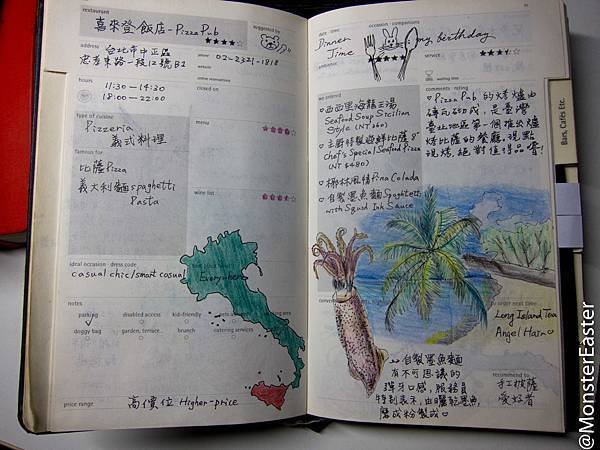 restaurant
喜來登飯店-Pizza Pub
suggested by
address
台北市中正區
忠孝東路一段12號B1
phone
02-2321-1818
website
online reservations
hours
11:30—14:30
18:00—22:00
closed on
type of cuisine
Pizzeria
義式料理
menu
famous for
比薩Pizza
義大利麵spaghetti
Pasta
wine list
ideal occasion · dress code
casual chic/smart casual
Everywhere
notes
parking
disabled access
kid-friendly
doggy bag
garden, terrace...
brunch
catering services
price range
高價位 Higher-price
date · time
occasion · companions
Dinner
Time
my birthday
ambience
service
waiting time
we ordered
西西里海龍王湯
Seafood Soup Sicilian
Style (NT 260)
主廚特製海鮮比薩 8"
Chef's Special Seafood Pizza
(NT $480)
椰林風情Pina Colada
自製墨魚麵Spaghetti
with Squid Ink Sauce
comments · rating
Pizza Pub 的烤爐由
磚瓦砌成,是臺灣
臺北地區第一個推出爐
烤比薩的餐廳,現點
現烤,絕對值得品嚐!
to order next time
Long Island Tea
Angel Hair
自製墨魚麵
有不可思議的
彈牙口感,服務員
特別表示,由曬乾墨魚,
磨成粉製成
recommended to
手工披薩
愛好者
Bars, Cafés Etc.
@MonsterEaster